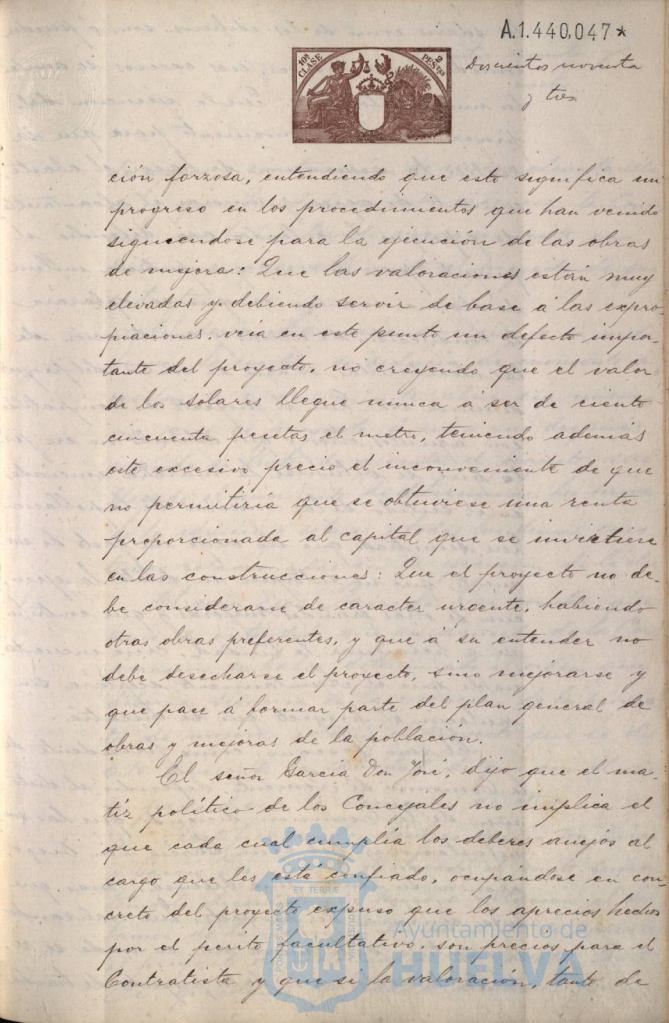 A.1.440,047*
10ª CLASE
2 PESTAS
Doscientos noventa
y tres
ción forzosa, entendiendo que esto significa un
progreso en los procedimientos que han venido
siguiendose para la ejecución de las obras
de mejora: Que las valoraciones están muy
elevadas y debiendo servir de base á las expro-
piaciones, veia en este punto un defecto impor-
tante del proyecto, no creyendo que el valor
de los solares llegue nunca á ser de ciento
cincuenta pesetas el metro, teniendo además
este excesivo precio el inconveniente de que
no permitiría que se obtuviese una renta
proporcionada al capital que se invirtiese
en las construcciones: Que el proyecto no de-
be considerarse de caracter urgente, habiendo
otras obras preferentes, y que á su entender no
debe desecharse el proyecto, sino mejorarse y
que pase á formar parte del plan general de
obras y mejoras de la población.
El señor García Don José, dijo que el ma-
tiz político de los Concejales no implica el
que cada cual cumplía los deberes anejos al
cargo que les está confiado, ocupándose en con-
creto del proyecto expuso que los aprecios hechos
por el perito facultativo, son precios para el
Contratista y que si la valoración, tanto de
Ayuntamiento de
HUELVA